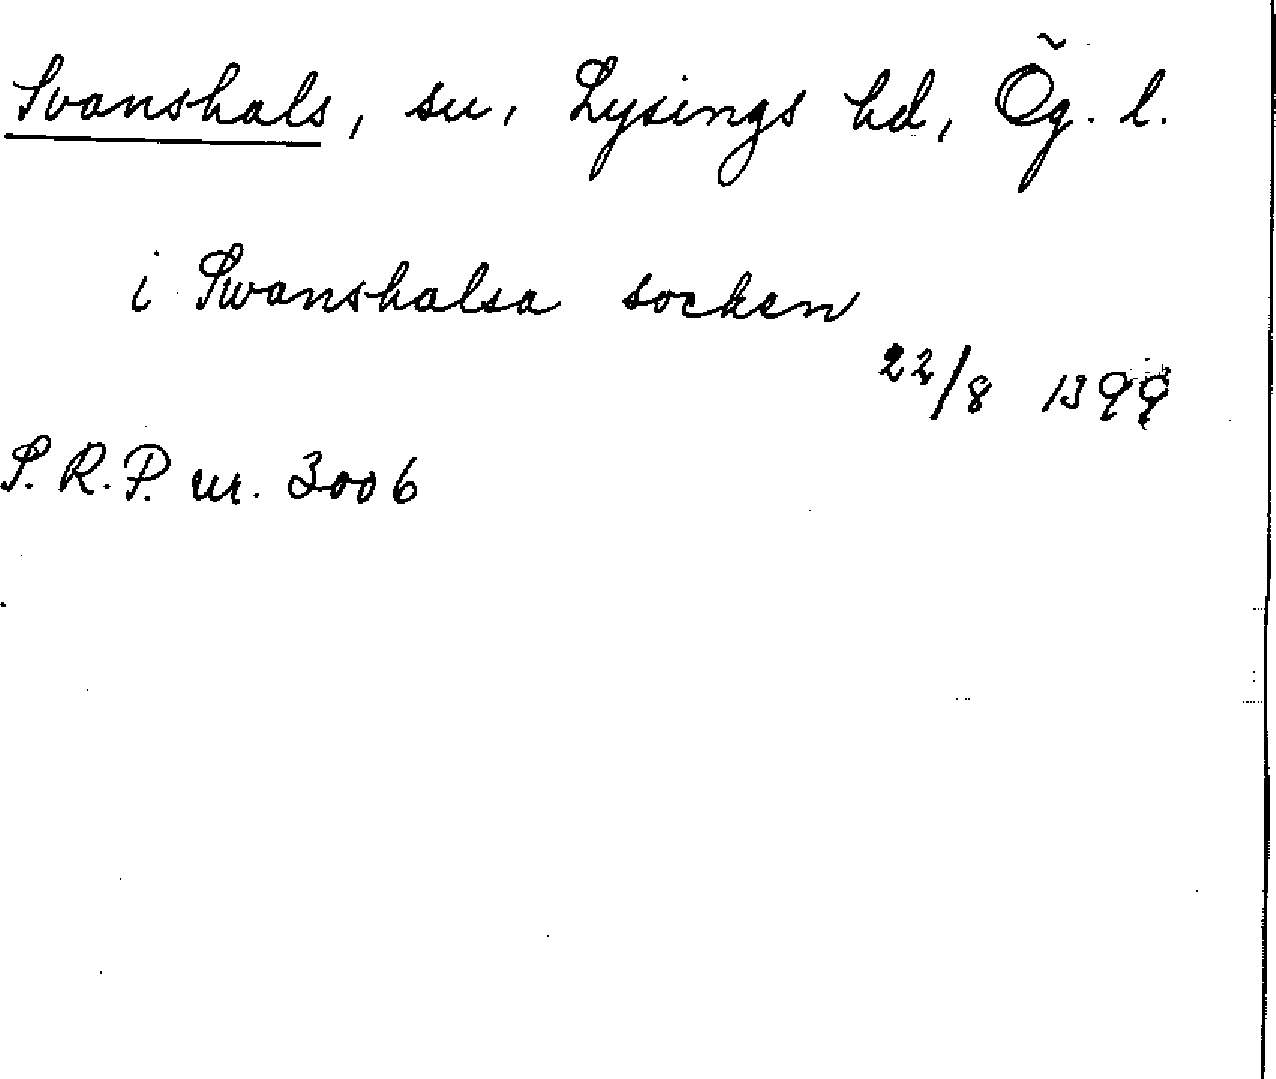 Svanshals, sn, Lysings hd, Ög. l.
i Swanshalsa socken
22/8 1399
S.R.P. nr. 3006